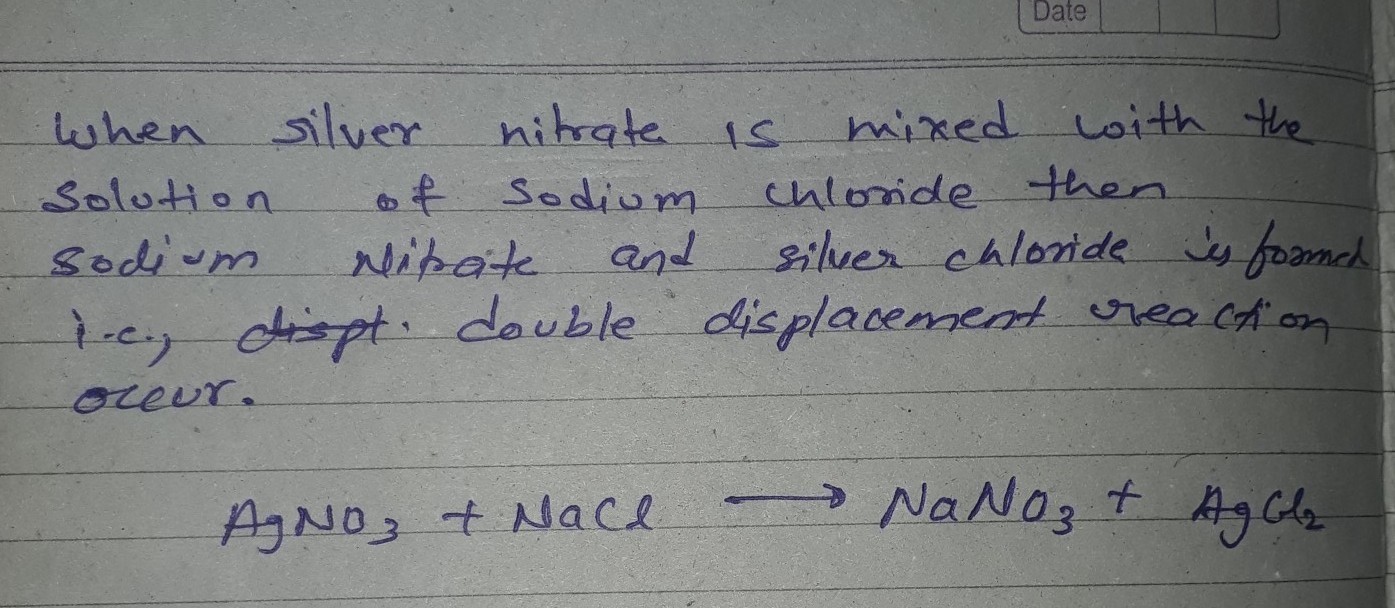 Date
When silver nitrate is mixed with the
solution of sodium chloride then
sodium Nitrate and silver chloride is formed
i.e., dispt. double displacement reaction
occur.
AgNO₃ + NaCl ⟶ NaNO₃ + AgCl₂